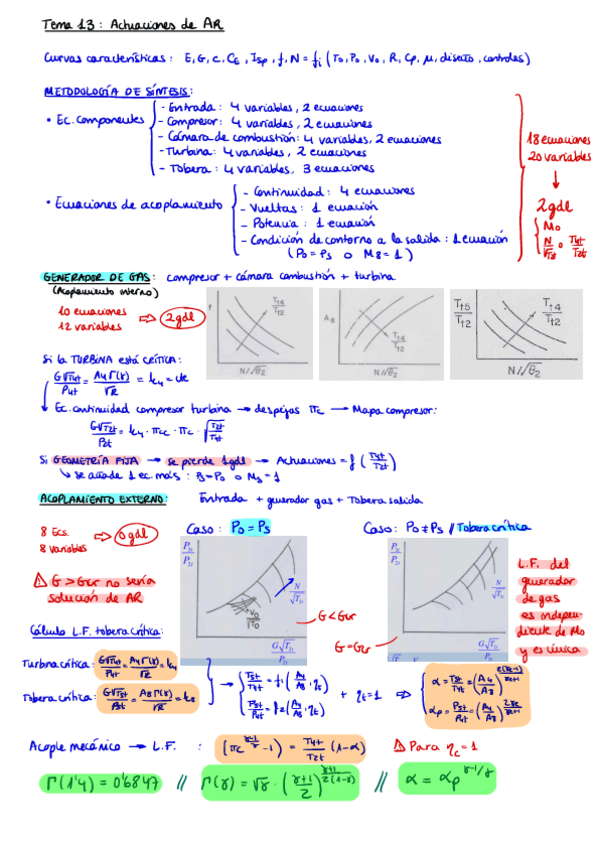 Tema 13: Actuaciones de AR
Curvas características: E, G, c, C_E, I_sp, f, N = f_i (T_0, P_0, V_0, R, C_p, μ, diseño, controles)
METODOLOGÍA DE SÍNTESIS:
• Ec. componentes
- Entrada: 4 variables, 2 ecuaciones
- Compresor: 4 variables, 2 ecuaciones
- Cámara de combustión: 4 variables, 2 ecuaciones
- Turbina: 4 variables, 2 ecuaciones
- Tobera: 4 variables, 3 ecuaciones
• Ecuaciones de acoplamiento
- Continuidad: 4 ecuaciones
- Vueltas: 1 ecuación
- Potencia: 1 ecuación
- Condición de contorno a la salida: 1 ecuación
(P_0 = P_s o M_8 = 1)
18 ecuaciones
20 variables
→ 2 gdl
M_0
N/√T_2t o T_4t/T_2t
GENERADOR DE GAS: compresor + cámara combustión + turbina
(Acoplamiento interno)
10 ecuaciones
12 variables
⇒ 2 gdl
f
T_t4/T_t2
N/√θ_2
A_8
T_t4/T_t2
N/√θ_2
T_t5/T_t2
T_t4/T_t2
N/√θ_2
Si la TURBINA está CRÍTICA:
G√T_4t/P_4t = A_4Γ(γ)/√R = k_4 = cte
Ec. continuidad compresor turbina → despejas π_c → Mapa compresor:
G√T_2t/P_2t = k_4 · π_cc · π_c · √(T_2t/T_4t)
Si GEOMETRÍA FIJA → se pierde 1 gdl → Actuaciones = f(T_4t/T_2t)
↳ se añade 1 ec. más: P_s = P_0 o M_s = 1
ACOPLAMIENTO EXTERNO: Entrada + generador gas + Tobera salida
8 Ecs.
8 variables
⇒ 0 gdl
Caso: P_0 = P_s
Caso: P_0 ≠ P_s // Tobera crítica
⚠ G > Gcr no sería
solución de AR
N/√T
V_0/√T_0
G < Gcr
G = Gcr
L.F. del
generador
de gas
es indepen
diente de M_0
y es única
Cálculo L.F. tobera crítica:
Turbina crítica: G√T_4t/P_4t = A_4Γ(γ)/√R = k_4
Tobera crítica: G√T_5t/P_5t = A_8Γ(γ)/√R = k_8
→ T_5t/T_4t = f_1(A_4/A_8, η_t)
P_5t/P_4t = f_2(A_4/A_8, η_t)
+ η_t = 1 ⇒
α = T_5t/T_4t = (A_4/A_8)^(2(γ-1)/(γ+1))
α_p = P_5t/P_4t = (A_4/A_8)^(2γ/(γ+1))
Acople mecánico → L.F. : (π_c^((γ-1)/γ) - 1) = T_4t/T_2t (1-α) ⚠ Para η_c = 1
Γ(1'4) = 0'6847 // Γ(γ) = √γ · ((γ+1)/2)^((γ+1)/(2(1-γ))) // α = α_p^((γ-1)/γ)